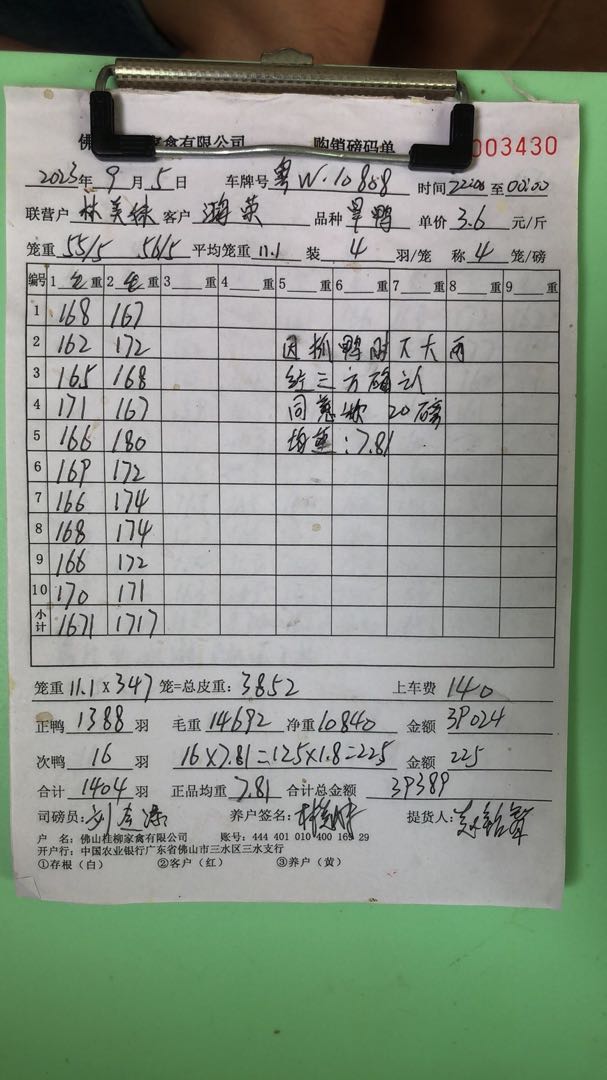 佛 家禽有限公司 购销磅码单 003430
2023年 9月 5日 车牌号 粤W·10868 时间 22:00 至 00:00
联营户 林美 客户 海荣 品种 旱鸭 单价 3.6 元/斤
笼重 55/5 56/5 平均笼重 11.1 装 4 羽/笼 称 4 笼/磅
编号 1 毛 重 2 毛 重 3 重 4 重 5 重 6 重 7 重 8 重 9 重
1 168 167
2 162 172 因抓鸭时下大雨
3 165 168 经三方确认
4 171 167 同意称20磅
5 166 180 均重:7.81
6 169 172
7 166 174
8 168 174
9 166 172
10 170 171
小计 1671 1717
笼重 11.1 X 347 笼=总皮重: 3852 上车费 140
正鸭 1388 羽 毛重 14692 净重 10840 金额 39024
次鸭 16 羽 16×7.81=125×1.8=225 金额 225
合计 1404 羽 正品均重 7.81 合计总金额 39389
司磅员: 刘 养户签名: 提货人:
户 名:佛山桂柳家禽有限公司 账号:444 401 010 400 163 29
开户行:中国农业银行广东省佛山市三水区三水支行
①存根(白) ②客户(红) ③养户(黄)